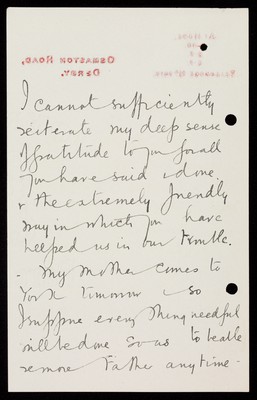 OSMASTON ROAD,
DERBY.
I cannot sufficiently
reiterate my deep sense
of gratitude to you for all
you have said & done,
& the extremely friendly
way in which you have
helped us in our trouble.
- My mother comes to
York tomorrow & so
I suppose every thing needful
will be done so as to be able
remove Father any time -